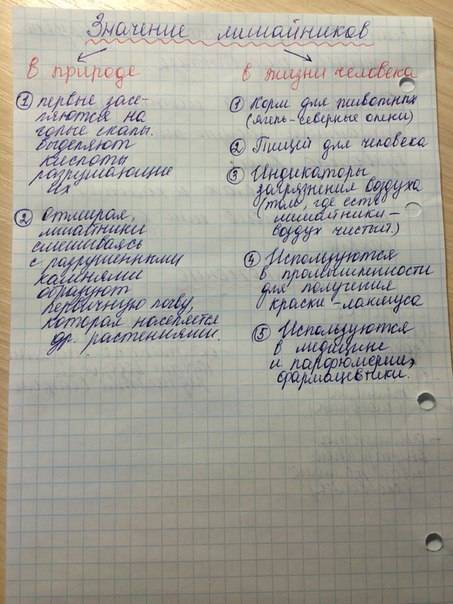 Значение лишайников
в природе
① первые засе-
ляются на
голые скалы.
Выделяют
кислоты
разрушающие
их
② отмирая,
лишайники
смешиваясь
с разрушенными
камнями
образуют
первичную почву,
которая населяется
др. растениями.
в жизни человека
① Корм для животных
(ягель-северные олени)
② Пищей для человека
③ Индикаторы
загрязнения воздуха
(там, где есть
лишайники-
воздух чистый)
④ Используются
в промышленности
для получения
краски-лакмуса
⑤ Используются
в медицине
и парфюмерии,
фармацевтики.